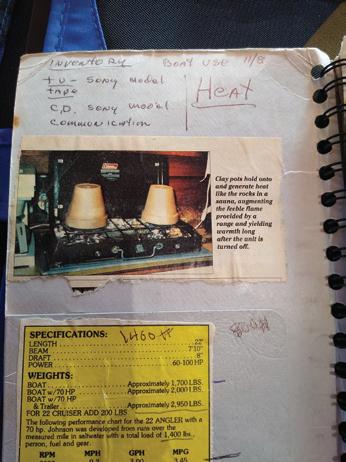 INVENTORY BOAT USE 11/8
TV - SONY model
tape
C.D. SONY model
communication
HEAT
Clay pots hold onto
and generate heat
like the rocks in a
sauna, augmenting
the feeble flame
provided by a
range and yielding
warmth long
after the unit is
turned off.
SPECIFICATIONS:
LENGTH 22'
BEAM 7'10"
DRAFT 8"
POWER 60-100 HP
WEIGHTS:
BOAT Approximately 1,700 LBS.
BOAT w/70 HP Approximately 2,000 LBS.
BOAT w/70 HP
& Trailer Approximately 2,950 LBS.
FOR 22 CRUISER ADD 200 LBS
The following performance chart for the 22 ANGLER with a
70 hp. Johnson was developed from runs over the
measured mile in saltwater with a total load of 1,400 lbs.,
person, fuel and gear.
RPM MPH GPH MPG